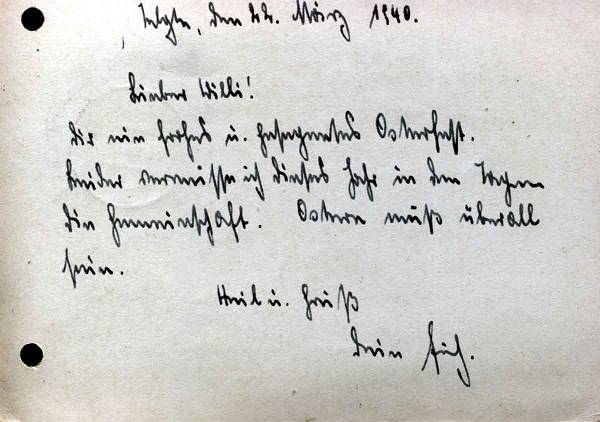 Telgte, den 22. März 1940.
Lieber Willi!
Dir ein frohes u. gesegnetes Osterfest.
Leider vermisse ich dieses Jahr in den Tagen
die Gemeinschaft. Ostern muß überall
sein.
Heil u. Gruß
Dein